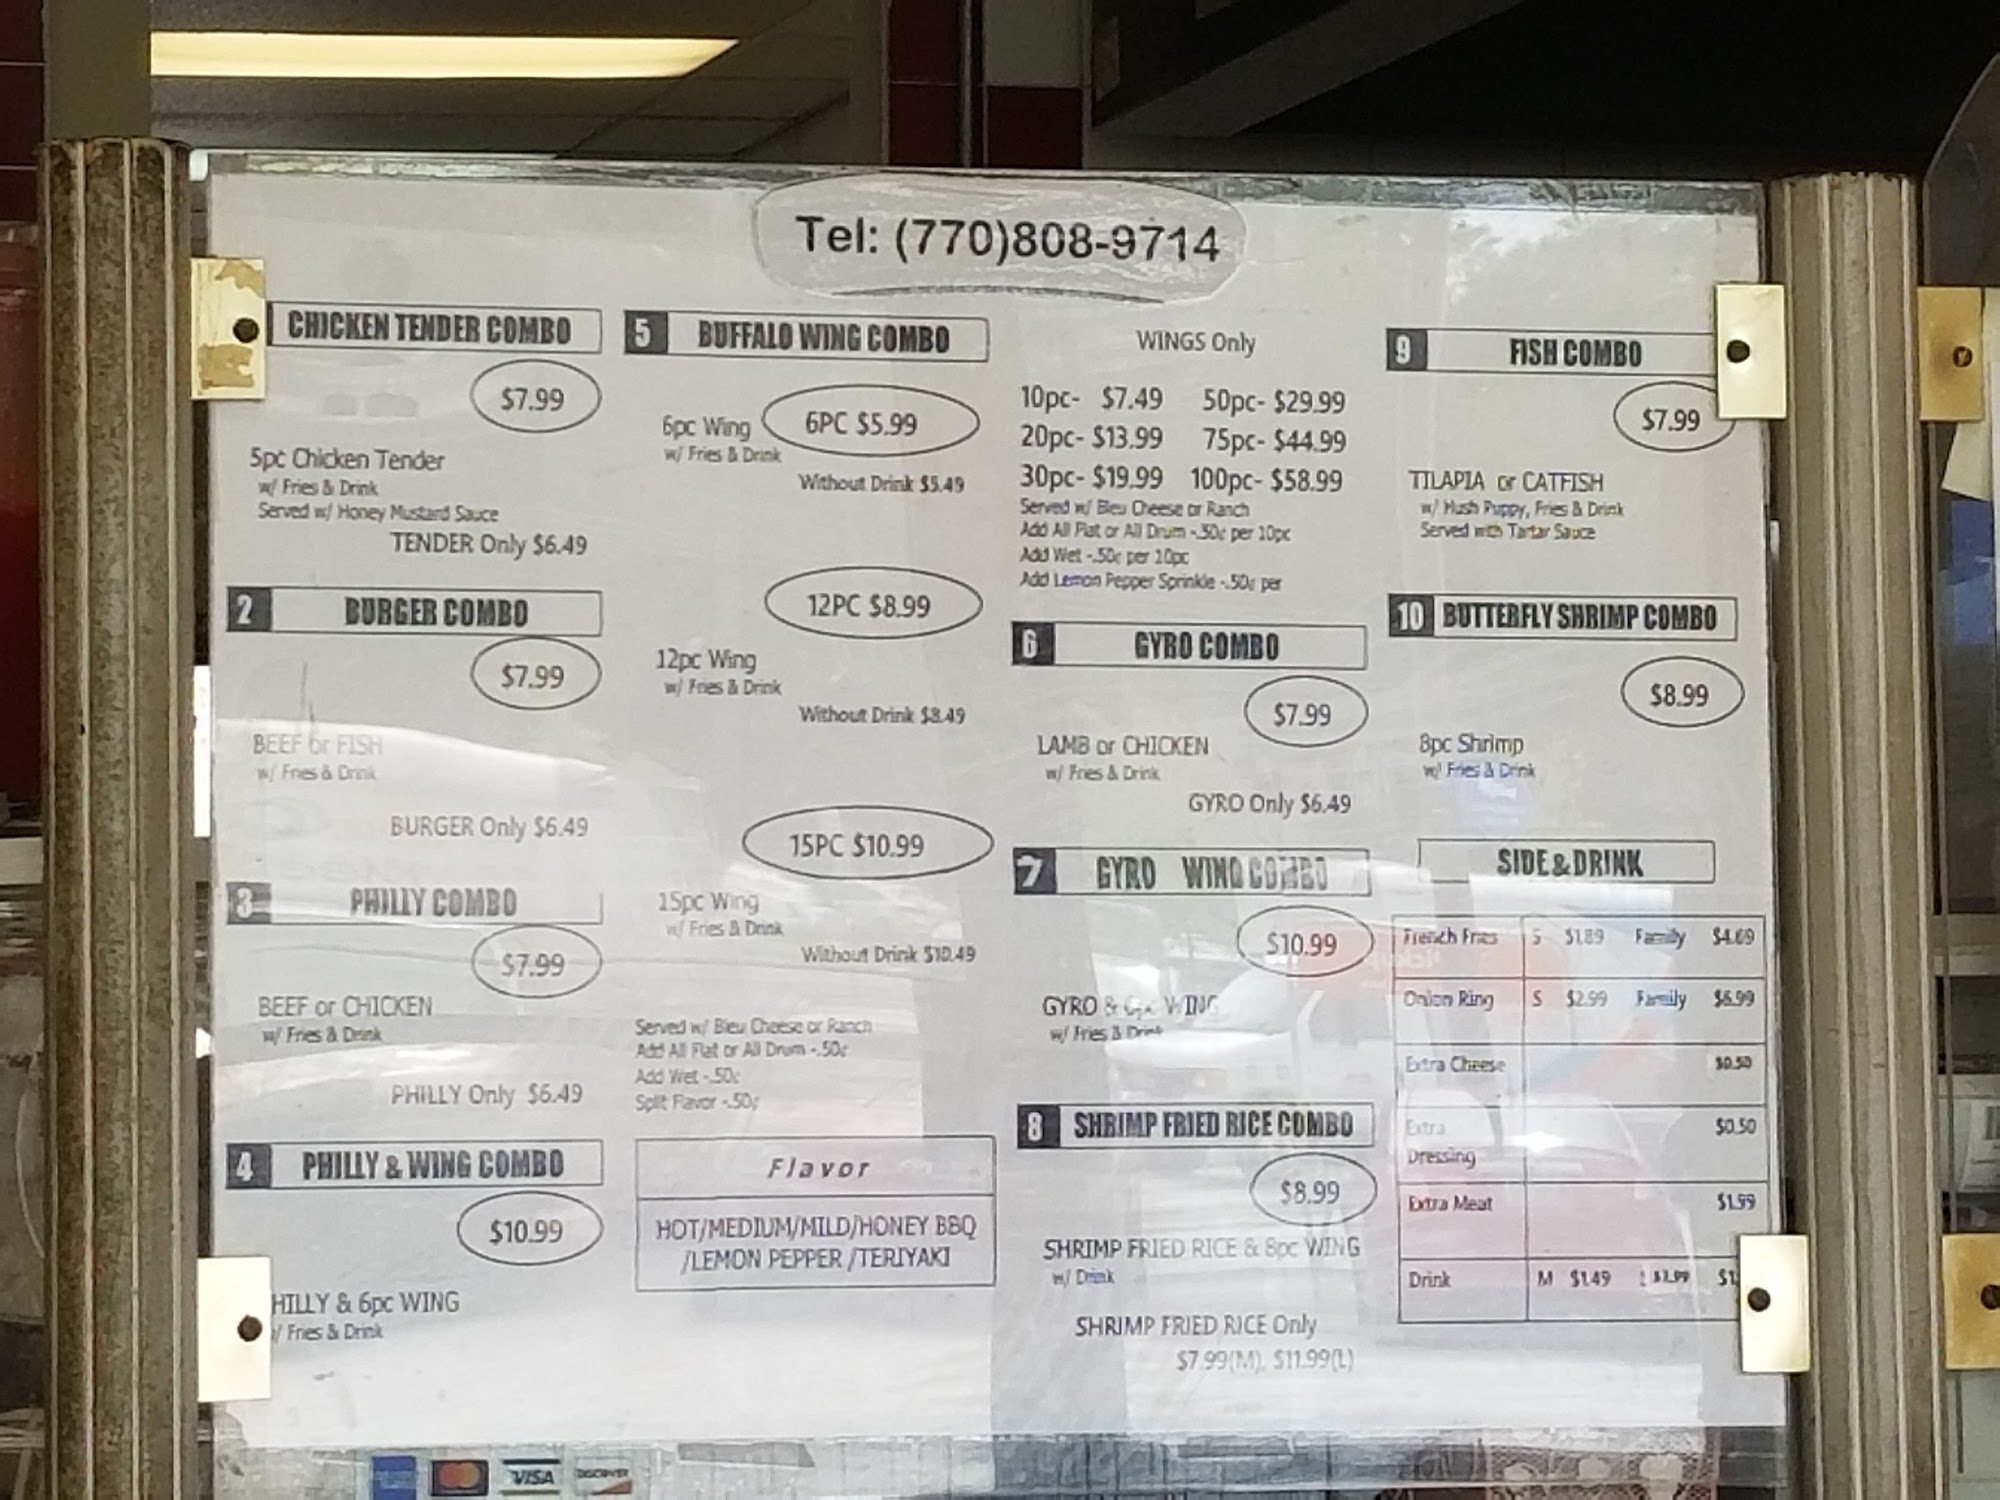 Tel: (770)808-9714
CHICKEN TENDER COMBO
$7.99
5pc Chicken Tender
w/ Fries & Drink
Served w/ Honey Mustard Sauce
TENDER Only $6.49
2 BURGER COMBO
$7.99
BEEF or FISH
w/ Fries & Drink
BURGER Only $6.49
3 PHILLY COMBO
$7.99
BEEF or CHICKEN
w/ Fries & Drink
PHILLY Only $6.49
4 PHILLY & WING COMBO
$10.99
HILLY & 6pc WING
/ Fries & Drink
5 BUFFALO WING COMBO
6pc Wing 6PC $5.99
w/ Fries & Drink
Without Drink $5.49
12PC $8.99
12pc Wing
w/ Fries & Drink
Without Drink $8.49
15PC $10.99
15pc Wing
w/ Fries & Drink
Without Drink $10.49
Served w/ Bleu Cheese or Ranch
Add All Flat or All Drum -.50¢
Add Wet -.50¢
Split Flavor -.50¢
Flavor
HOT/MEDIUM/MILD/HONEY BBQ
/LEMON PEPPER /TERIYAKI
WINGS Only
10pc- $7.49 50pc- $29.99
20pc- $13.99 75pc- $44.99
30pc- $19.99 100pc- $58.99
Served w/ Bleu Cheese or Ranch
Add All Flat or All Drum -.50¢ per 10pc
Add Wet -.50¢ per 10pc
Add Lemon Pepper Sprinkle -.50¢ per
6 GYRO COMBO
$7.99
LAMB or CHICKEN
w/ Fries & Drink
GYRO Only $6.49
7 GYRO WING COMBO
$10.99
GYRO & WING
w/ Fries & Drink
8 SHRIMP FRIED RICE COMBO
$8.99
SHRIMP FRIED RICE & 8pc WING
w/ Drink
SHRIMP FRIED RICE Only
$7.99(M), $11.99(L)
9 FISH COMBO
$7.99
TILAPIA or CATFISH
w/ Hush Puppy, Fries & Drink
Served with Tartar Sauce
10 BUTTERFLY SHRIMP COMBO
$8.99
8pc Shrimp
w/ Fries & Drink
SIDE & DRINK
French Fries S $1.89 Family $4.69
Onion Ring S $2.99 Family $6.99
Extra Cheese $0.50
Extra $0.50
Dressing
Extra Meat $1.99
Drink M $1.49 $1
VISA
DISCOVER